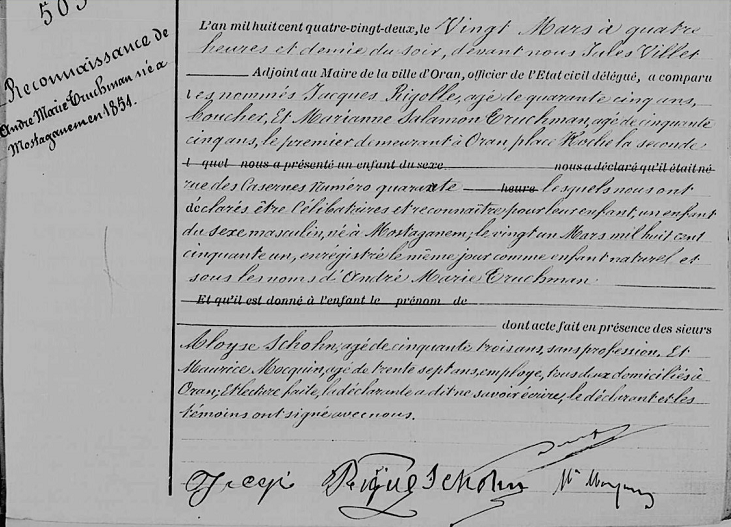 503
Reconnaissance de
André Marie Truchman né à
Mostaganem en 1851.
L'an mil huit cent quatre-vingt-deux, le Vingt Mars à quatre
heures et demie du soir, devant nous Jules Villet
Adjoint au Maire de la ville d'Oran, officier de l'Etat civil délégué, a comparu
les nommés Jacques Rigolle, agé de quarante cinq ans,
boucher, Et Marianne Salamon Truchman, agée de cinquante
cinq ans, le premier demeurant à Oran, place Roche la seconde
l quel nous a présenté un enfant du sexe nous a déclaré qu'il était né
rue des Casernes Numéro quarante heure lesquels nous ont
déclarés être Célibataires et reconnaître pour leur enfant, un enfant
du sexe masculin, né à Mostaganem, le vingt un Mars mil huit cent
cinquante un, enregistré le même jour comme enfant naturel et
sous les noms d'André Marie Truchman.
Et qu'il est donné à l'enfant le prénom de
dont acte fait en présence des sieurs
Aloyse Schohn, agé de cinquante trois ans, sans profession, Et
Maurice Mocquin, agé de trente sept ans, employé, tous deux domiciliés à
Oran; Et lecture faite, la déclarante a dit ne savoir écrire, le déclarant et les
témoins ont signé avec nous.
Schohn